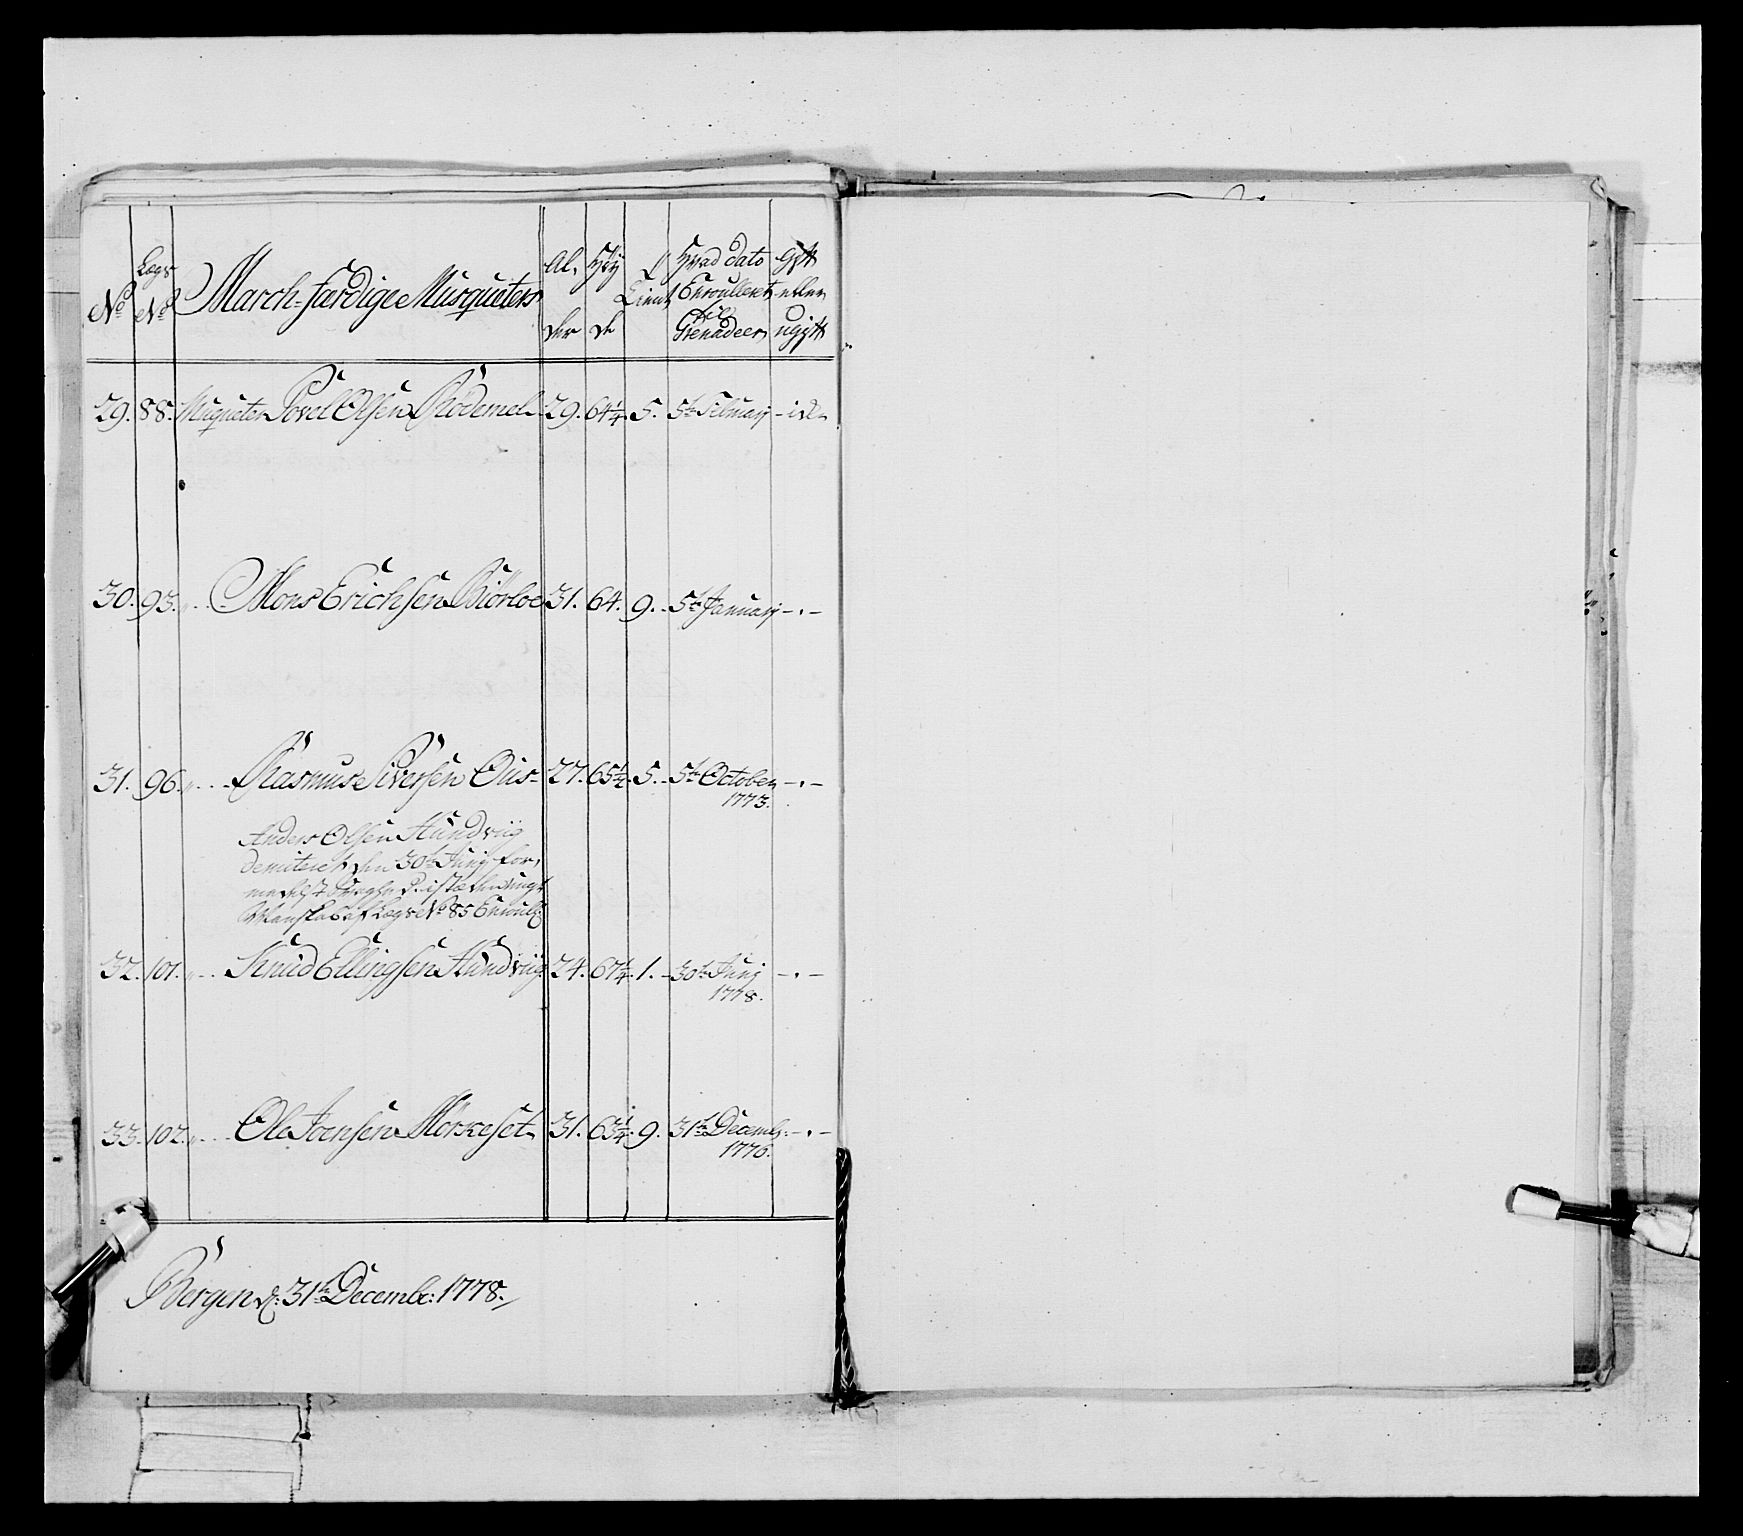 No
Legs No
March-færdige Musqueters
Al, der
Høy de
Tient
Hvad dato Enroulleret til Grenadeer
Gift eller ugift
29. 88. Musqueter Povel Olsen Rødemel 29. 64¼ 5. 5te Februarj
30. 93. " Mons Erichsen Biørloe 31. 64. 9. 5te Januarj - . -
31. 96. " Rasmus Siversen Ous 27. 65½ 5. 5te October - . -
1773.
Anders Olsen Hundviig
demiteret den 30te Junj for,
Mandskab af Legs No 85 Enroul:
32. 101. " Knud Ellingsen Hundviig 24. 67¼ 1. 30te Junj - . -
1778.
33. 102. " Ole Joensen Mørkeset 31. 63¼ 9. 31te Decemb: - . -
1776.
Bergen d: 31te Decembr: 1778.